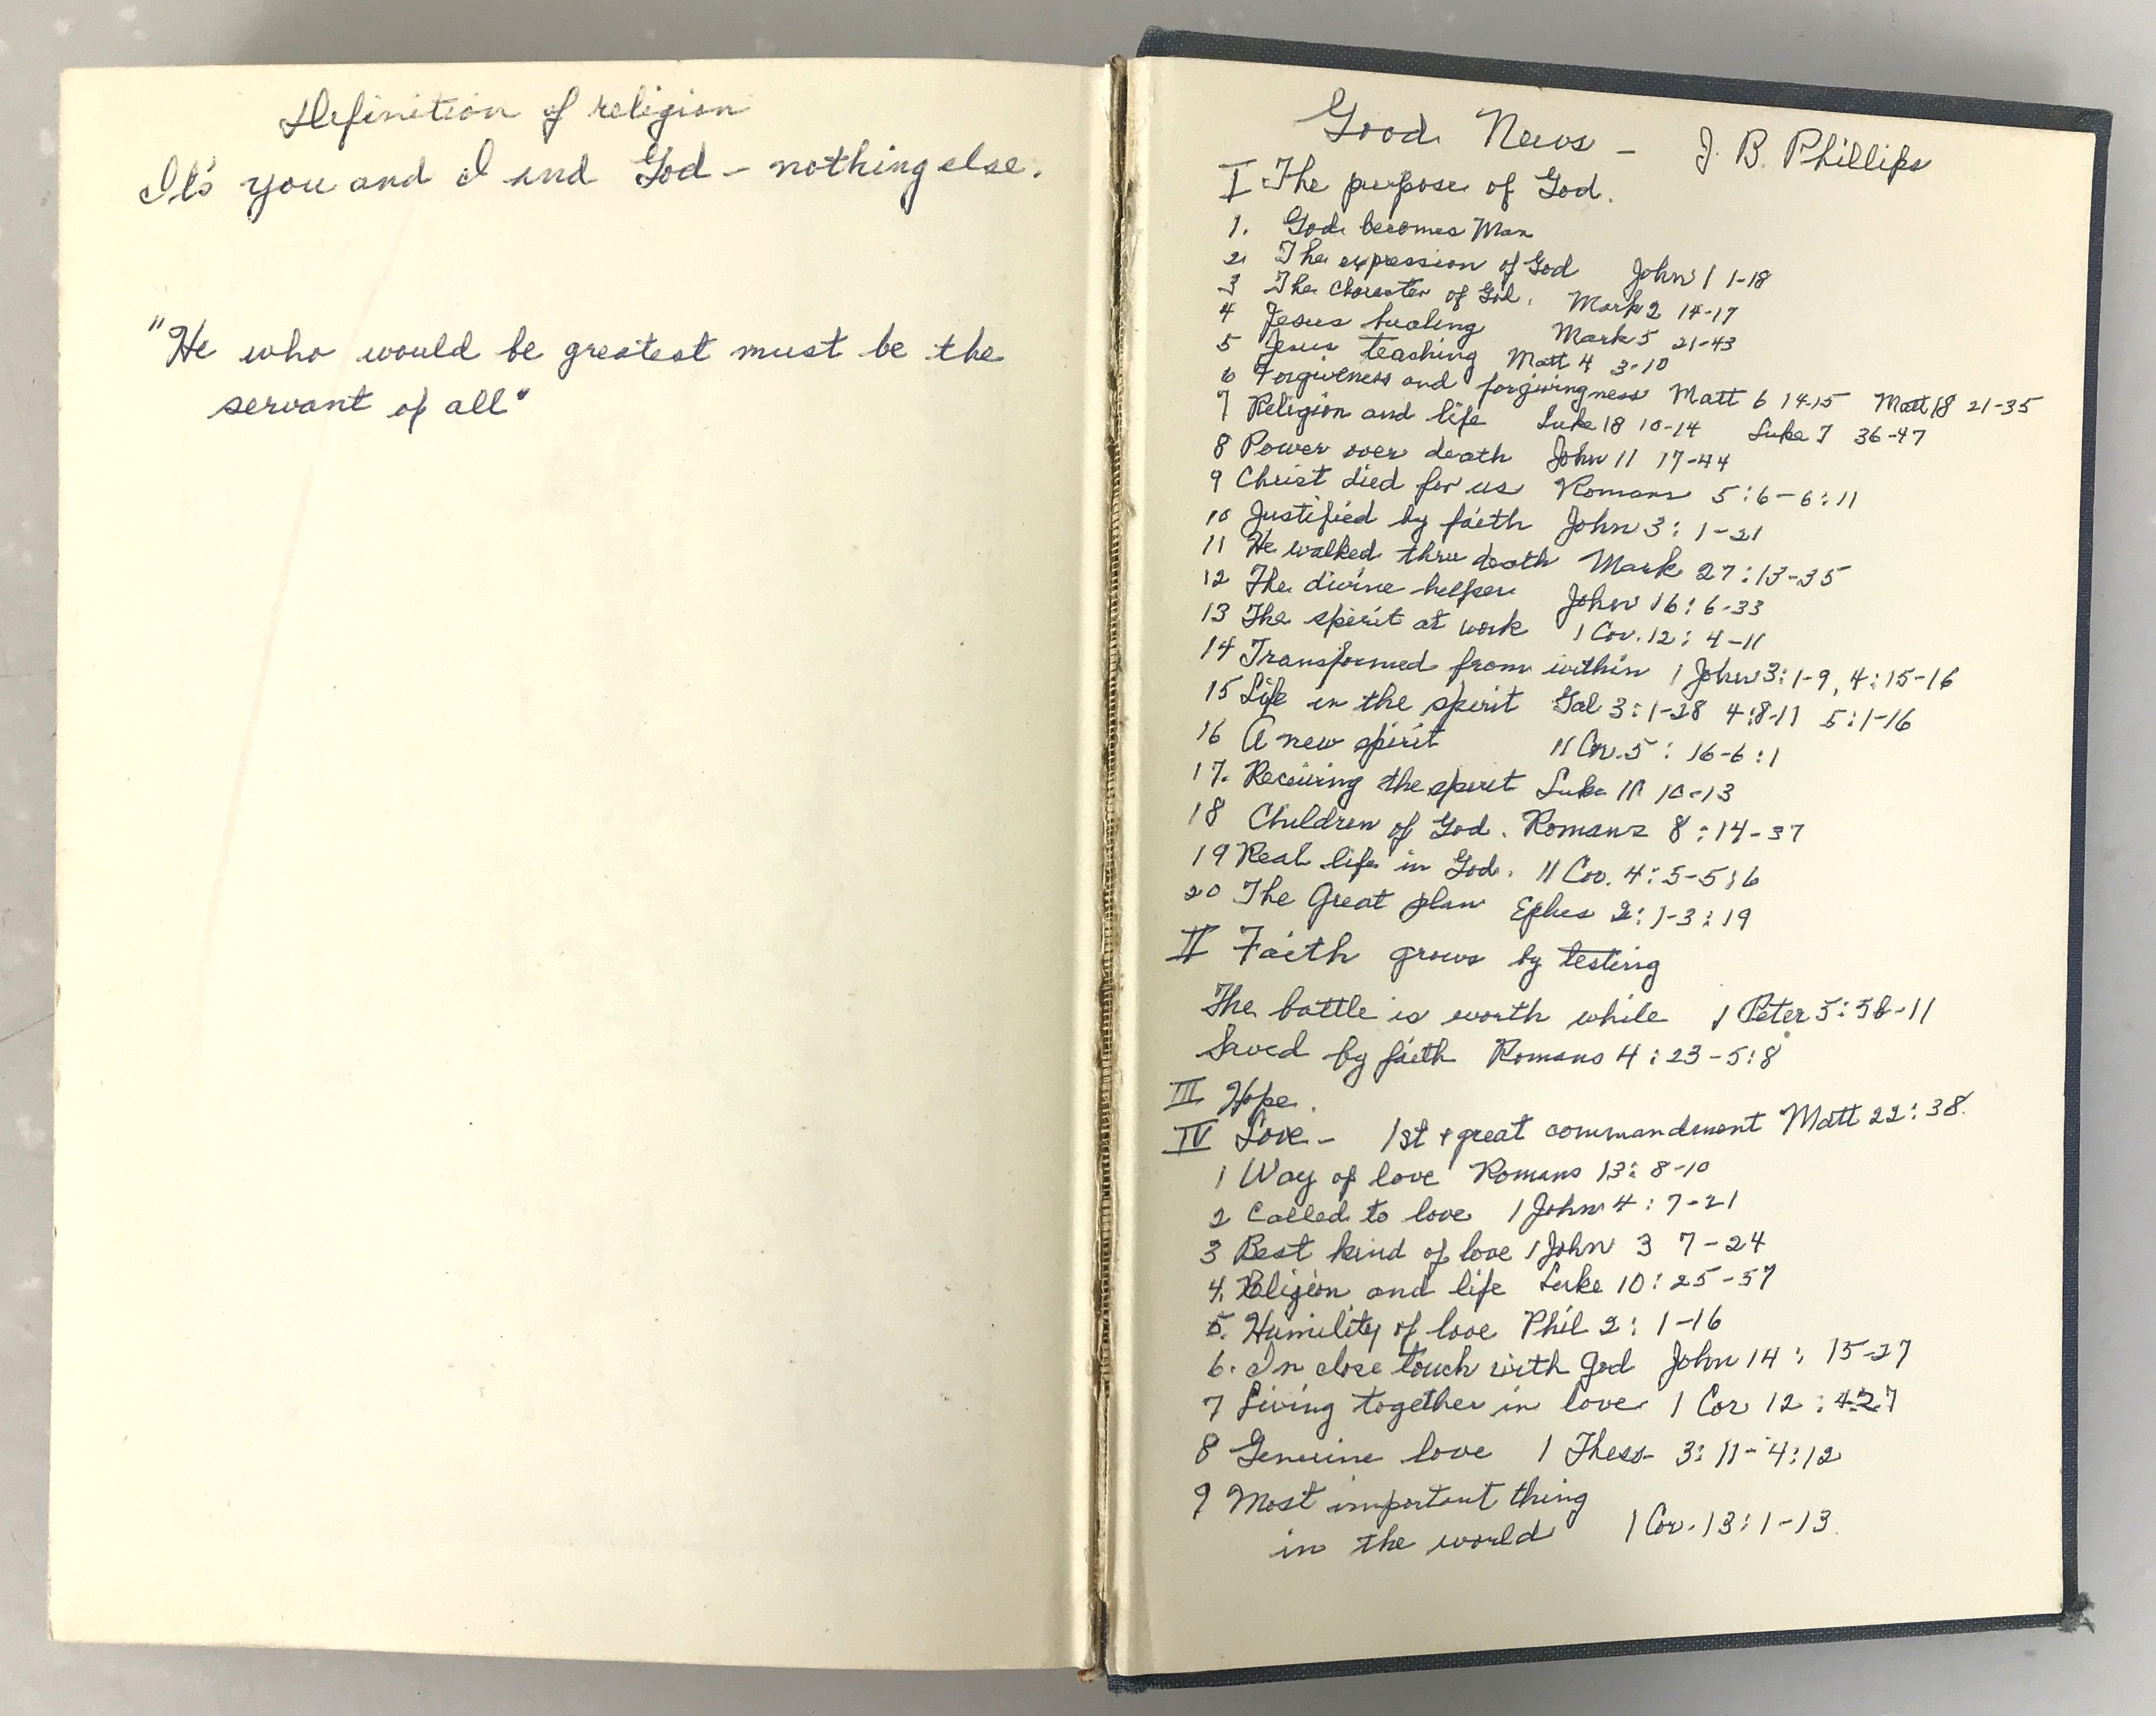 Definition of religion
It's you and I and God - nothing else.
"He who would be greatest must be the
servant of all"
Good News - J. B. Phillips
I The purpose of God.
1. God becomes Man
2 The expression of God John 1 1-18
3 The character of God. Mark 2 14-17
4 Jesus healing Mark 5 21-43
5 Jesus teaching Matt 4 3-10
6 Forgiveness and forgivingness Matt 6 14-15 Matt 18 21-35
7 Religion and life Luke 18 10-14 Luke 7 36-47
8 Power over death John 11 17-44
9 Christ died for us Romans 5:6-6:11
10 Justified by faith John 3: 1-21
11 He walked thru death Mark 27:13-35
12 The divine helper John 16:6-33
13 The spirit at work 1 Cor. 12: 4-11
14 Transformed from within 1 John 3:1-9, 4:15-16
15 Life in the spirit Gal 3:1-28 4:8-11 5:1-16
16 A new spirit II Cor. 5: 16-6:1
17. Receiving the spirit Luke 11 10-13
18 Children of God. Romans 8:14-37
19 Real life in God. II Cor. 4:5-5:6
20 The Great plan Ephes 2:1-3:19
II Faith grows by testing
The battle is worth while 1 Peter 5:5b-11
Saved by faith Romans 4:23-5:8
III Hope.
IV Love - 1st + great commandment Matt 22:38.
1 Way of love Romans 13: 8-10
2 Called to love 1 John 4: 7-21
3 Best kind of love 1 John 3 7-24
4. Religion and life Luke 10: 25-37
5. Humility of love Phil 2: 1-16
6. In close touch with God John 14: 15-27
7 Living together in love 1 Cor 12: 4-27
8 Genuine love 1 Thess- 3: 11-4:12
9 Most important thing
in the world 1 Cor. 13:1-13.